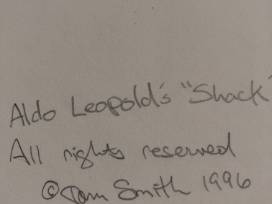 Aldo Leopold's "Shack"
All rights reserved
© Tom Smith 1996